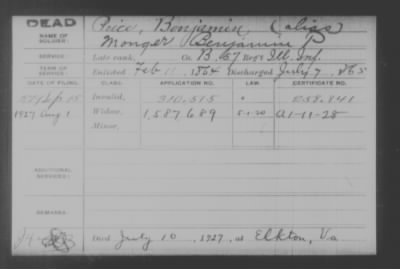 DEAD
NAME OF SOLDIER: Price, Benjamin (alias)
Monger Benjamin P
SERVICE: Late rank, Co. B, 67 Reg't Ill. Inf.
TERM OF SERVICE: Enlisted Feb 11, 1864 Discharged July 7, 1865
DATE OF FILING. CLASS. APPLICATION NO. LAW. CERTIFICATE NO.
Invalid, 510.515 858.841
1927 Aug. 1 Widow, 1,587689 5-1-20 A1-11-28
Minor,
ADDITIONAL SERVICES:
REMARKS:
Died July 10, 1927, at Elkton, Va